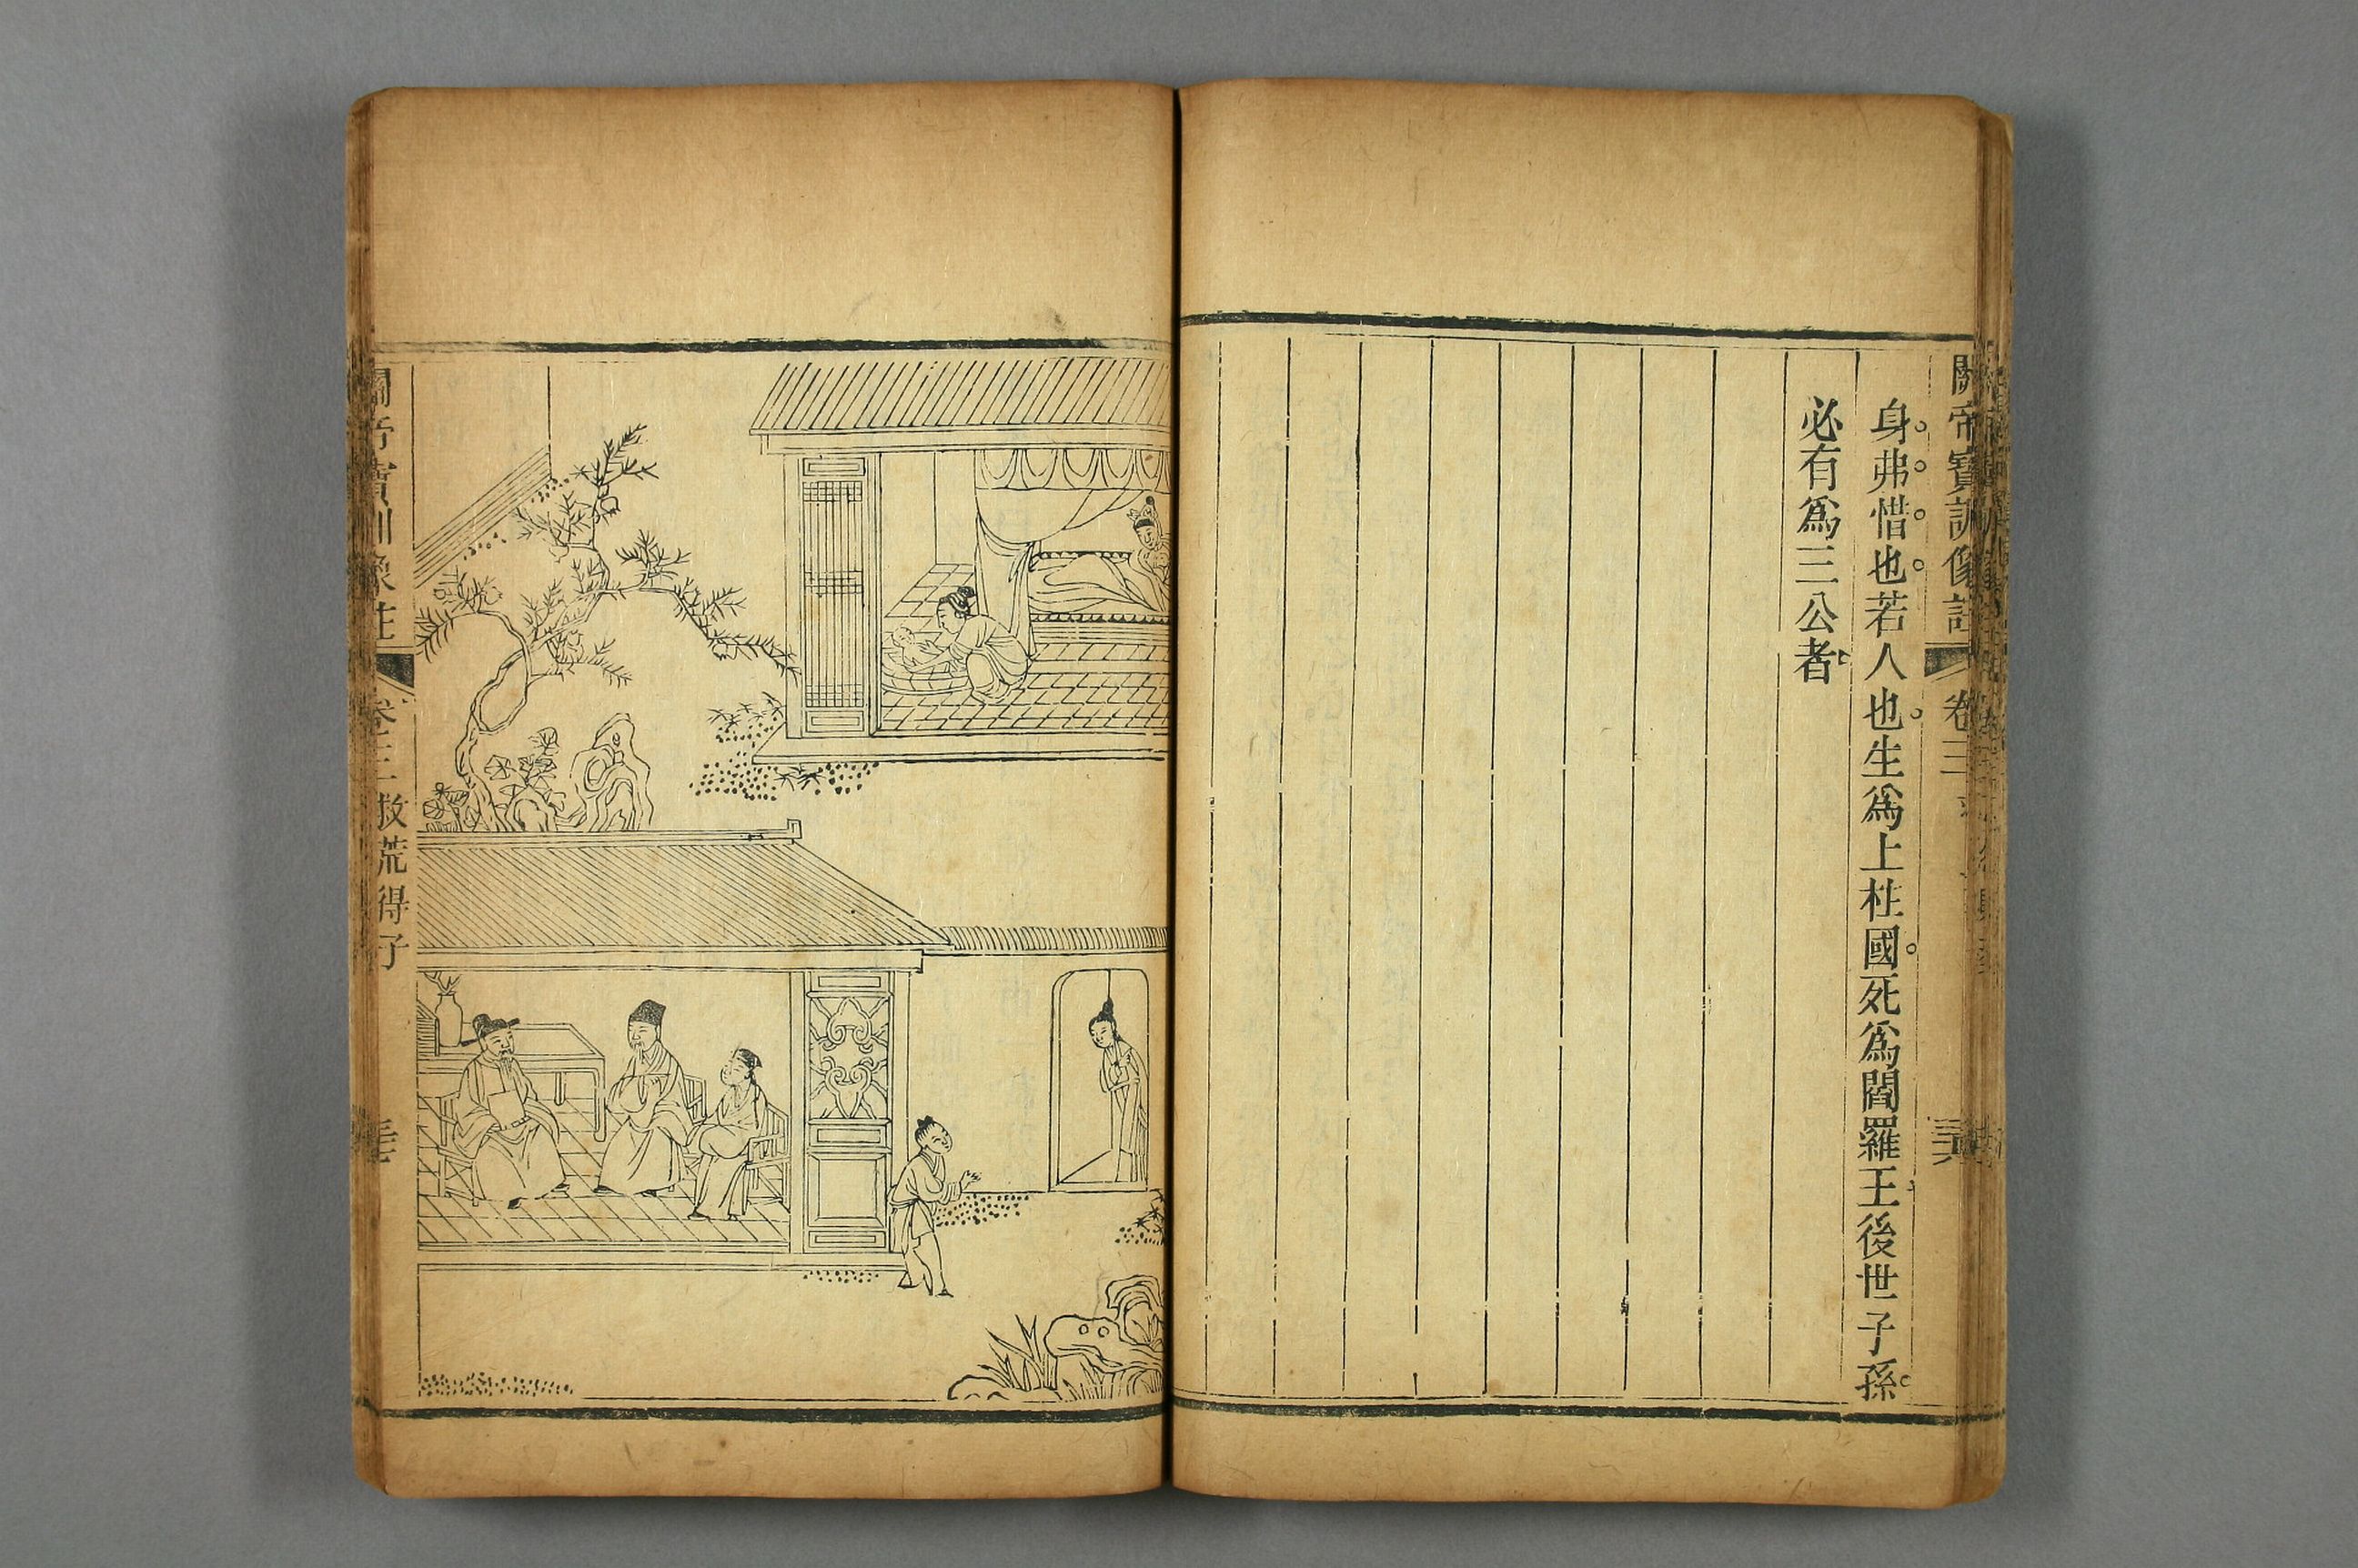 關帝寶訓像註 卷三
身弗惜也若人也生爲上柱國死爲閻羅王後世子孫
必有爲三公者
關帝寶訓像註 卷三 救荒得子